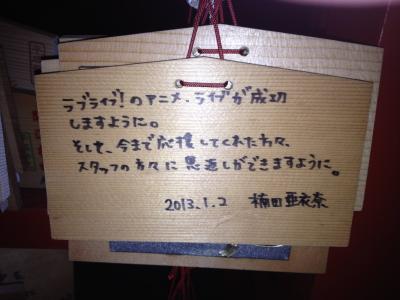 ラブライブ!のアニメ、ライブが成功
しますように。
そして、今まで応援してくれた方々、
スタッフの方々に恩返しができますように。
2013.1.2 楠田亜衣奈